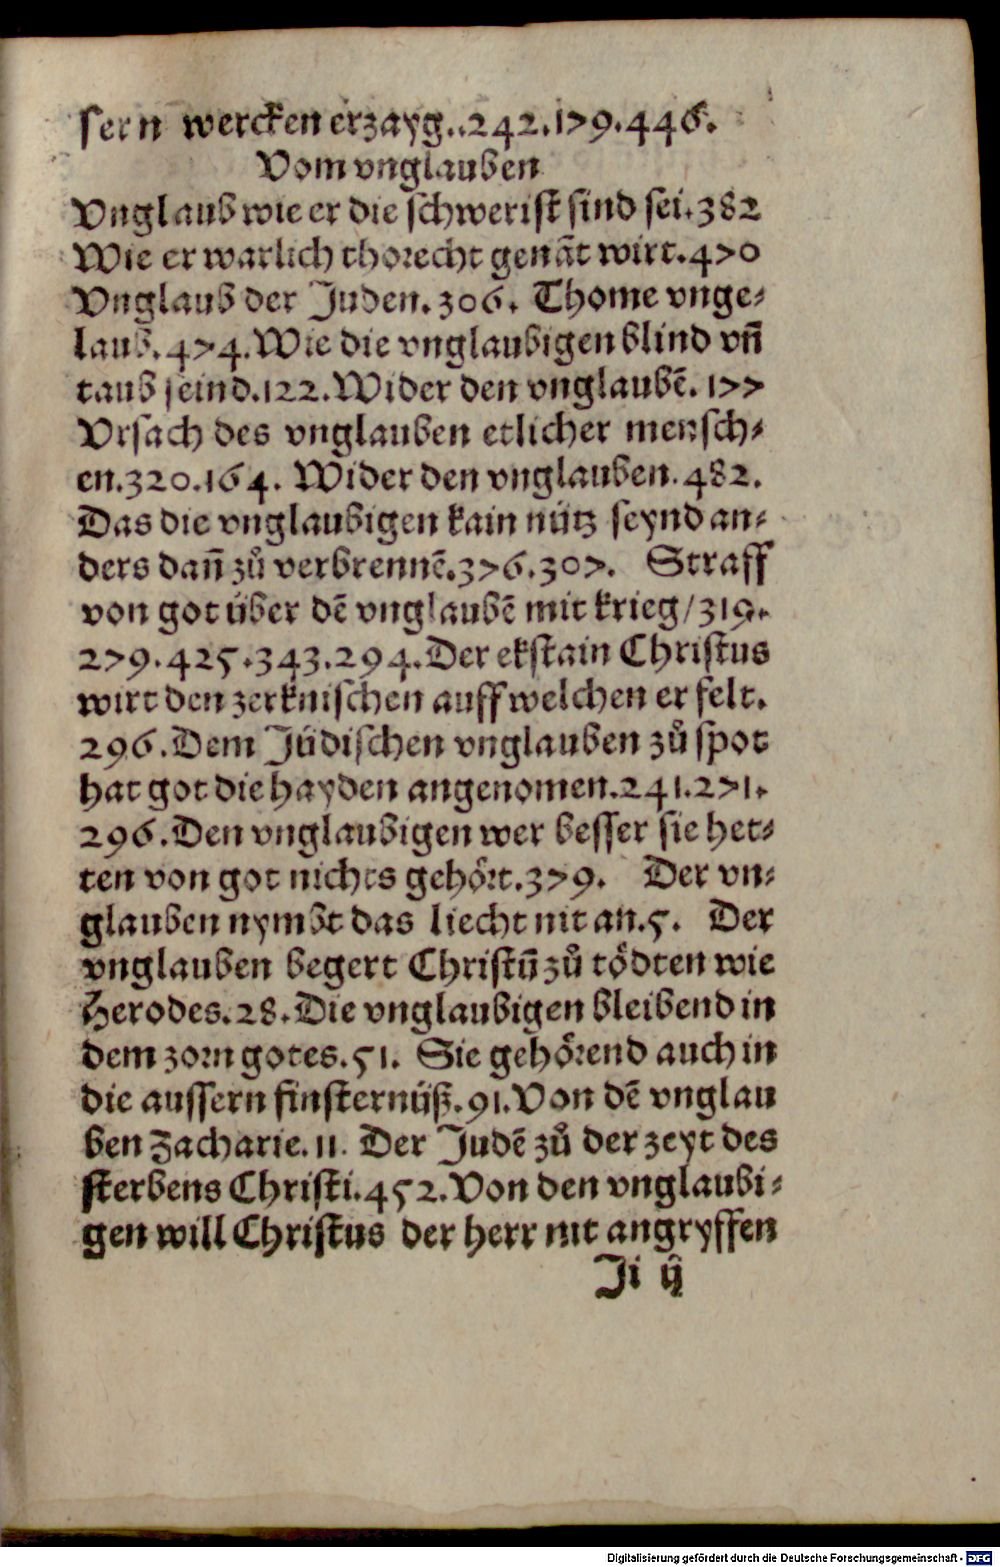 sern wercken erzayg..242.179.446.
Vom vnglauben
Vnglaub wie er die schwerist sind sei.382
Wie er warlich thorecht genāt wirt.470
Vnglaub der Juden.306. Thome vnge-
laub.474.Wie die vnglaubigen blind vn̄
taub seind.122.Wider den vnglaubē.177
Vrsach des vnglauben etlicher mensch-
en.320.164. Wider den vnglauben.482.
Das die vnglaubigen kain nütz seynd an-
ders dan̄ zů verbrennē.376.307. Straff
von got über dē vnglaubē mit krieg/319.
279.425.343.294.Der ekstain Christus
wirt den zerknischen auff welchen er felt.
296.Dem Jüdischen vnglauben zů spot
hat got die hayden angenomen.241.271.
296.Den vnglaubigen wer besser sie het-
ten von got nichts gehört.379. Der vn-
glauben nymbt das liecht nit an.5. Der
vnglauben begert Christū zů tödten wie
Herodes.28.Die vnglaubigen bleibend in
dem zorn gotes.51. Sie gehörend auch in
die aussern finsternüß.91.Von dē vnglau
ben Zacharie.11. Der Judē zů der zeyt des
sterbens Christi.452.Von den vnglaubi-
gen will Christus der herr nit angryffen
Ji ij
Digitalisierung gefördert durch die Deutsche Forschungsgemeinschaft - DFG